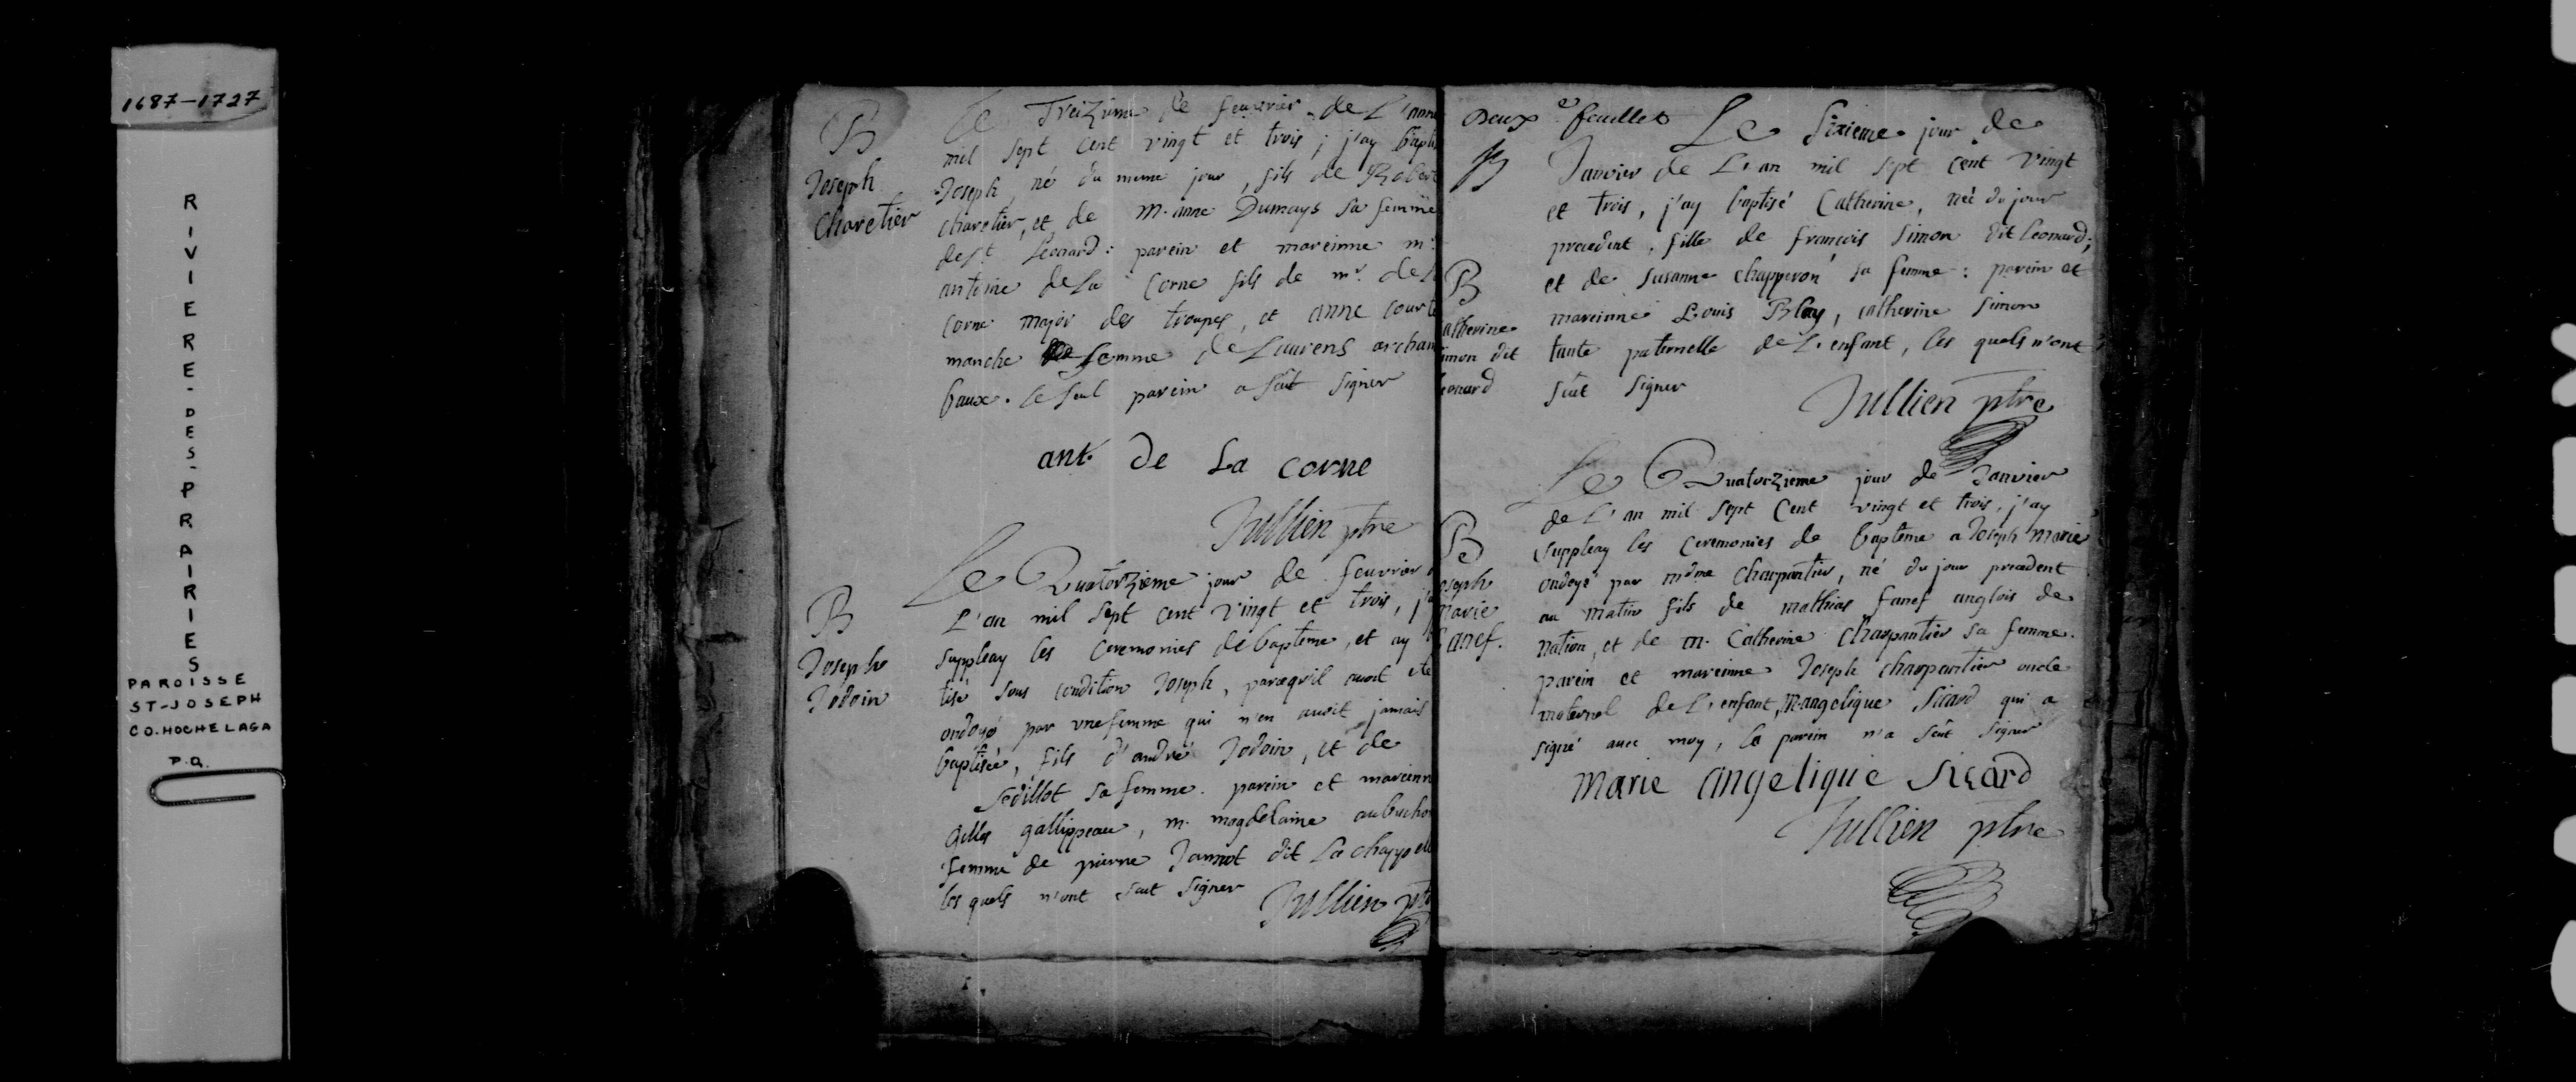 1687-1727
RIVIERE-DES-PRAIRIES
PAROISSE
ST-JOSEPH
CO. HOCHELAGA
P.Q.
B
Joseph
Charetier
Le Treizieme de feuvrier de L'ann
mil sept cent vingt et trois; j'ay bapti
Joseph, né du meme jour, fils de Rober
charetier, et de M. anne Dumays sa femme
de st. Leonard: parein et mareinne mr.
antoine de La Corne fils de mr. de L
corne major des troupes, et anne courte
manche femme de Laurens archam
baux. Le seul parein a sçut signer
ant. de La corne
Jullien ptre
B
Joseph
Jodoin
Le Quatorzieme jour de feuvrier
L'an mil sept cent vingt et trois, j'a
suppleay les ceremonies de bapteme, et ay
tisé sous condition Joseph, parcequ'il avoit ete
ondoyé par une femme qui n'en avoit jamais
baptisée, fils d'andré Jodoin, et de
Sedillot sa femme. parein et mareinn
Gilles gallippeau, m. magdelaine aubucho
femme de pierre Jannot dit La chappell
les quels n'ont sçut signer
Jullien pt
Deux e feuillet
B
Le Sixieme jour de
Janvier de L'an mil sept cent vingt
et trois, j'ay baptisé Catherine, née du jour
precedent, fille de françois Simon dit Leonard;
et de Susanne chapperon sa femme: parein et
mareinne Louis Blay, catherine Simon
tante paternelle de L'enfant, les quels n'ont
sçut signer
B
atherine
imon dit
eonard
Jullien ptre
Le Quatorzieme jour de Janvier
de L'an mil sept cent vingt et trois, j'ay
suppleay les ceremonies de bapteme a Joseph marie
ondoyé par mdme Charpantier, né du jour precedent
au matin fils de mathias fanef anglois de
nation, et de m. Catherine Charpantier sa femme.
parein et mareinne Joseph charpantier oncle
maternel de L'enfant, M. angelique Sicard qui a
signé avec moy, le parein n'a sçut signer
B
oseph
marie
fanef.
Marie Angelique Sicard
Jullien ptre